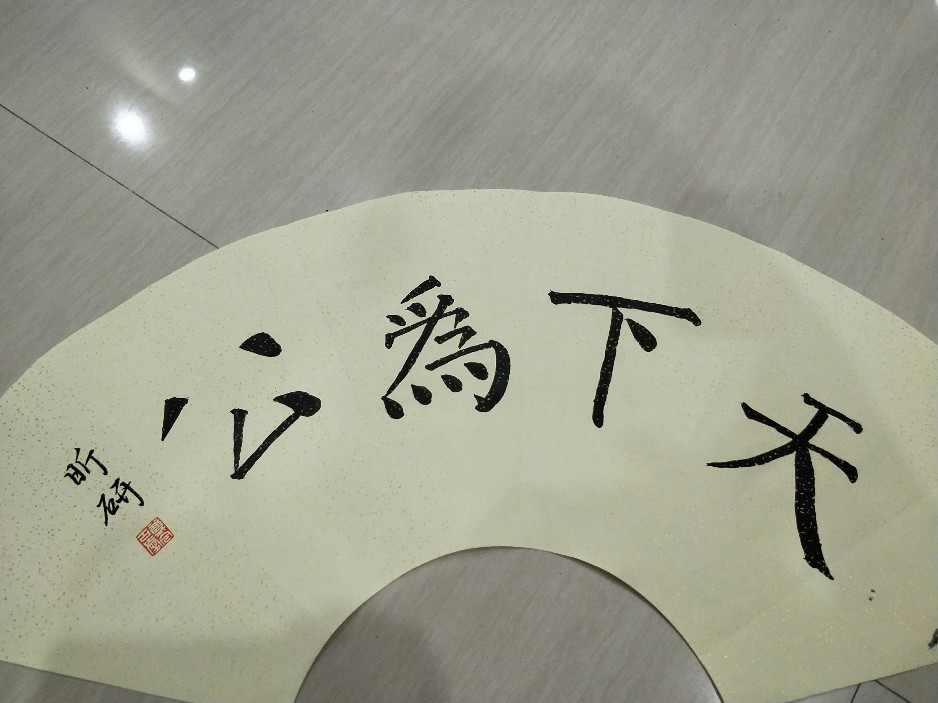 天下爲公
昕研